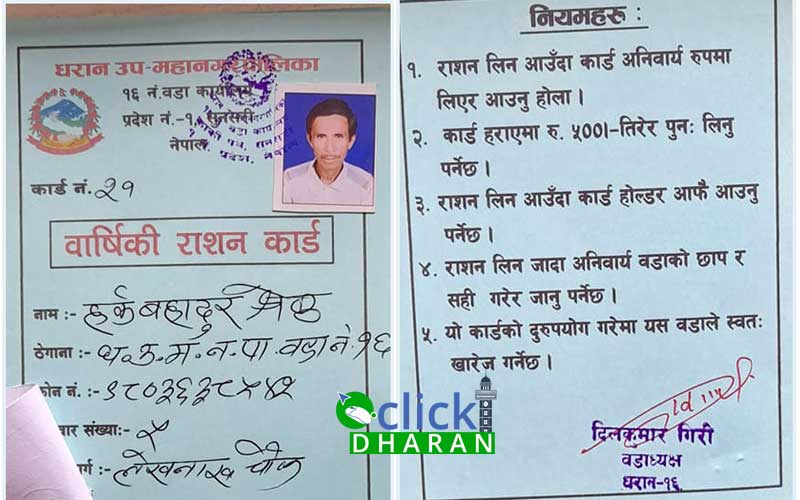 धरान उप-महानगरपालिका
१६ नं.वडा कार्यालय
प्रदेश नं.-१, सुनसरी
नेपाल
कार्ड नं. २१
वार्षिकी राशन कार्ड
नाम :- हर्क बहादुर
ठेगाना :- ध.उ.म.न.पा. वडा नं. १६
फोन नं. :-
वार संख्या:- ५
मार्ग :- लेखनाथ चोक
नियमहरु :
१. राशन लिन आउँदा कार्ड अनिवार्य रुपमा
लिएर आउनु होला ।
२. कार्ड हराएमा रु. ५००।-तिरेर पुन: लिनु
पर्नेछ ।
३. राशन लिन आउँदा कार्ड होल्डर आफै आउनु
पर्नेछ ।
४. राशन लिन जादा अनिवार्य वडाको छाप र
सही गरेर जानु पर्नेछ ।
५. यो कार्डको दुरुपयोग गरेमा यस वडाले स्वत:
खारेज गर्नेछ ।
दिलकुमार गिरी
वडाध्यक्ष
धरान-१६
click
DHARAN